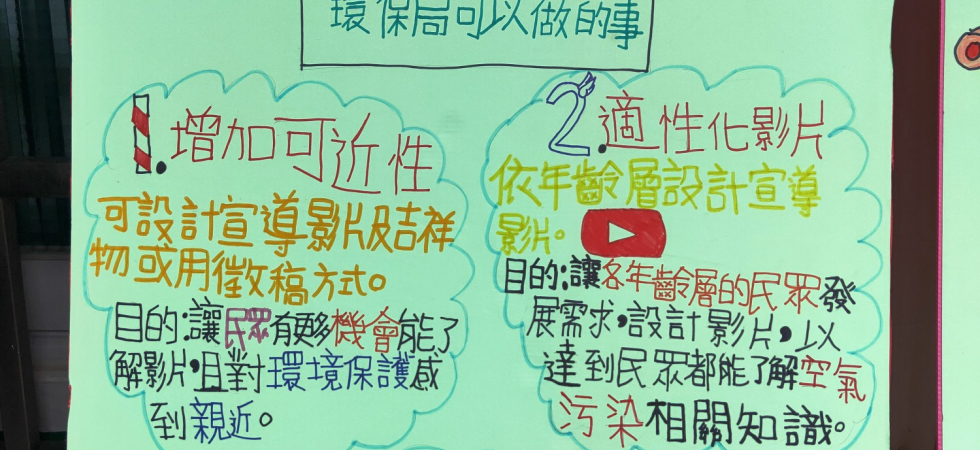 環保局可以做的事
1.增加可近性
可設計宣導影片及吉祥
物或用徵稿方式。
目的:讓民眾有更多機會能了
解影片,且對環境保護感
到親近。
2.適性化影片
依年齡層設計宣導
影片。
目的:讓各年齡層的民眾發
展需求,設計影片,以
達到民眾都能了解空氣
污染相關知識。